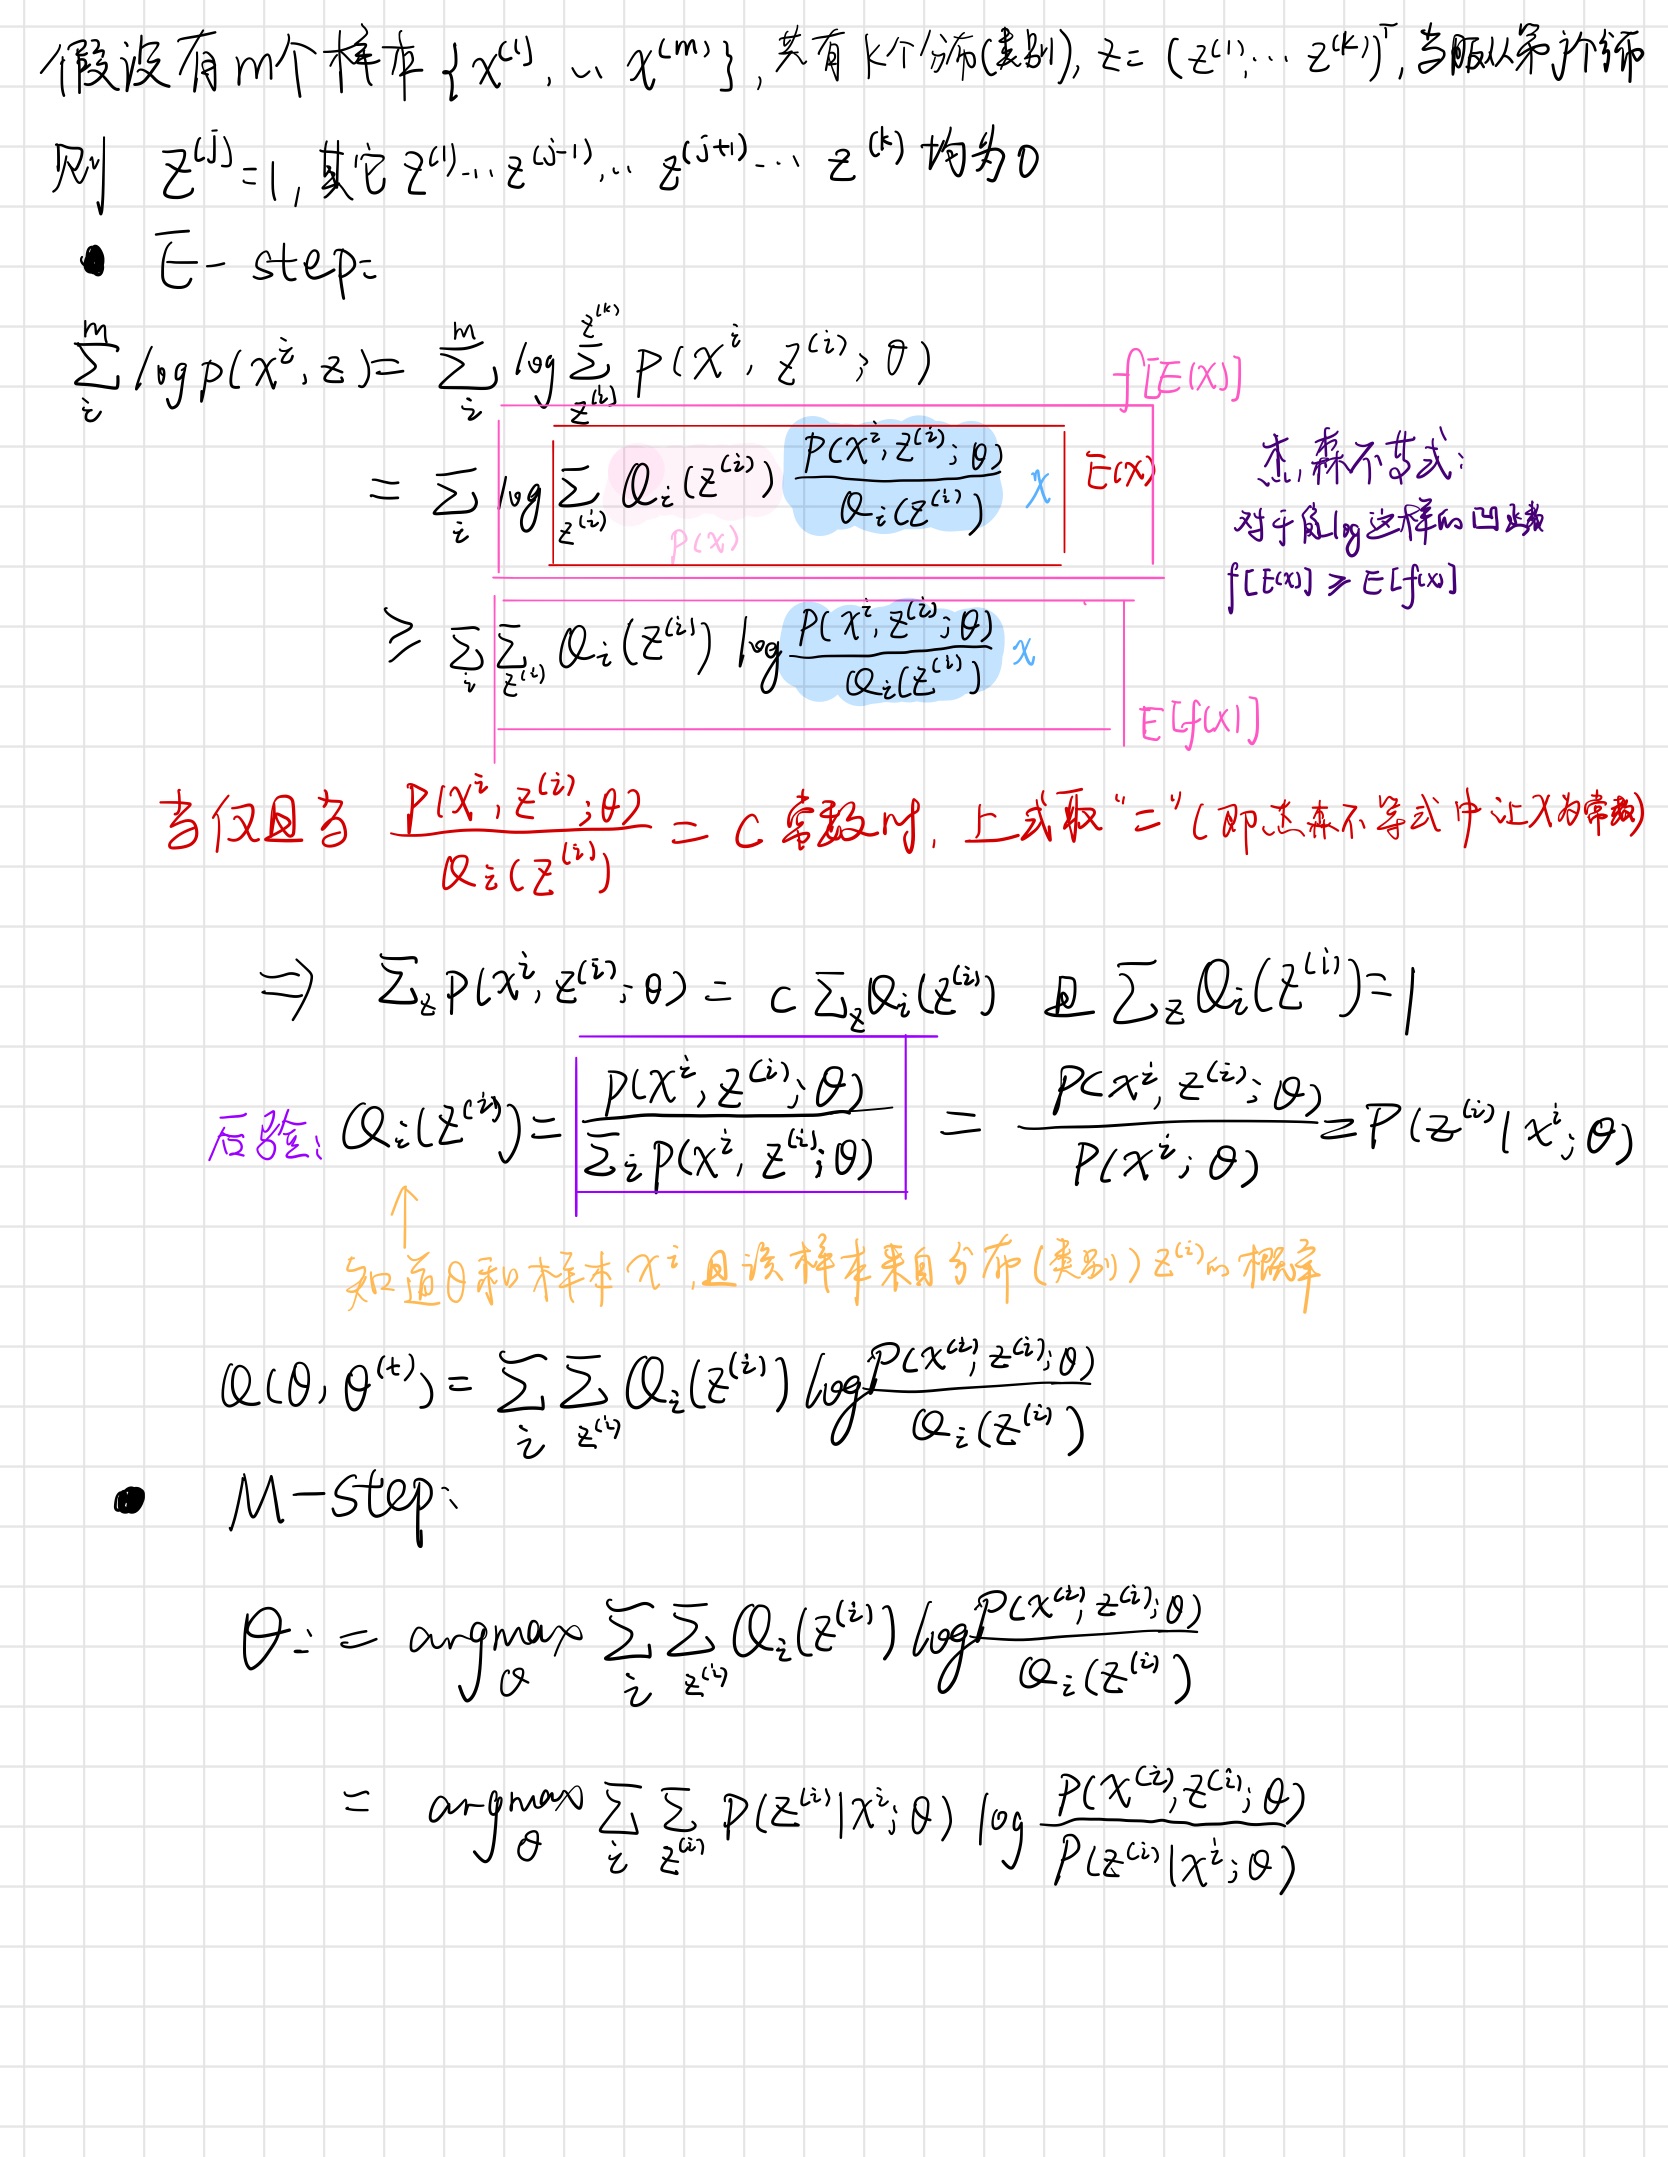 假设有m个样本{x^(1), … x^(m)}, 共有k个分布(类别), z = (z^(1), … z^(k))^T, 当服从第j个分布
则 z^(j) = 1, 其它 z^(1) … z^(j-1), … z^(j+1) … z^(k) 均为0
• E-step:
∑_i^m log p(x^i, z) = ∑_i^m log ∑_{z^(i)}^{z^(k)} p(x^i, z^(i); θ)
f[E(X)]
= ∑_i log ∑_{z^(i)} Q_i(z^(i)) P(x^i, z^(i); θ) / Q_i(z^(i)) x E(X)
p(x)
杰森不等式:
对于log这样的凹函数
f[E(X)] ≥ E[f(x)]
≥ ∑_i ∑_{z^(i)} Q_i(z^(i)) log P(x^i, z^(i); θ) / Q_i(z^(i)) x
E[f(X)]
当仅且当 P(x^i, z^(i); θ) / Q_i(z^(i)) = c 常数时, 上式取"=" (即杰森不等式中让X为常数)
⇒ ∑_z p(x^i, z^(i); θ) = c ∑_z Q_i(z^(i)) 且 ∑_z Q_i(z^(i)) = 1
后验: Q_i(z^(i)) = p(x^i, z^(i); θ) / ∑_i p(x^i, z^(i); θ) = P(x^i, z^(i); θ) / P(x^i; θ) = P(z^(i) | x^i; θ)
↑
知道θ和样本x^i, 且该样本来自分布(类别)z^(i)的概率
Q(θ, θ^(t)) = ∑_i ∑_{z^(i)} Q_i(z^(i)) log P(x^(i), z^(i); θ) / Q_i(z^(i))
• M-step:
θ := argmax_θ ∑_i ∑_{z^(i)} Q_i(z^(i)) log P(x^(i), z^(i); θ) / Q_i(z^(i))
= argmax_θ ∑_i ∑_{z^(i)} P(z^(i) | x^i; θ) log P(x^(i), z^(i); θ) / P(z^(i) | x^i; θ)